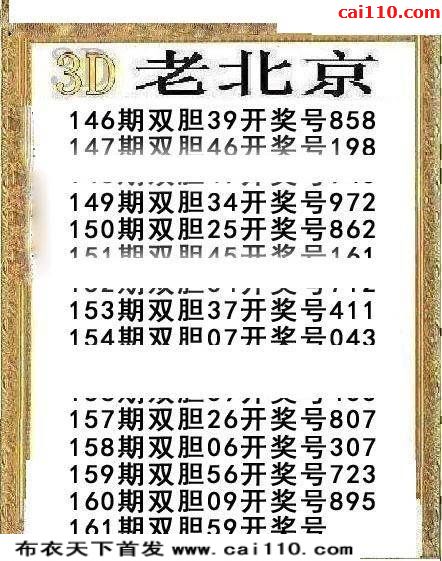 cai110.com
3D 老北京
146期双胆39开奖号858
147期双胆46开奖号198
149期双胆34开奖号972
150期双胆25开奖号862
151期双胆45开奖号161
153期双胆37开奖号411
154期双胆07开奖号043
157期双胆26开奖号807
158期双胆06开奖号307
159期双胆56开奖号723
160期双胆09开奖号895
161期双胆59开奖号
布衣天下首发 www.cai110.com